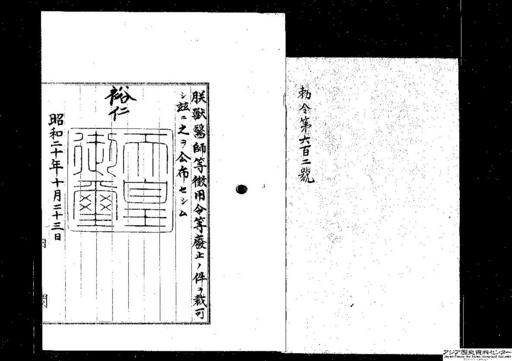 勅令第六百二號
朕獸醫師等徴用令等廢止ノ件ヲ裁可
シ茲ニ之ヲ公布セシム
裕仁
天皇
御璽
昭和二十年十月二十三日
内 閣
アジア歴史資料センター